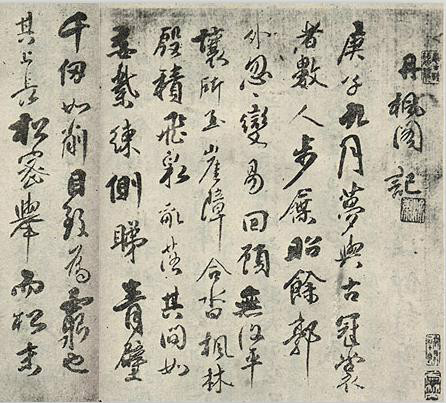 丹楓閣記
庚子九月夢與古冠裳
者數人步屧昭餘郭
外忽忽變易回顧無復平
壤所立崖障合沓楓林
殷積飛泉亂落其間如
垂紫練側睇青壁
千仞如削目致為窮也
其上長松密舉而松末